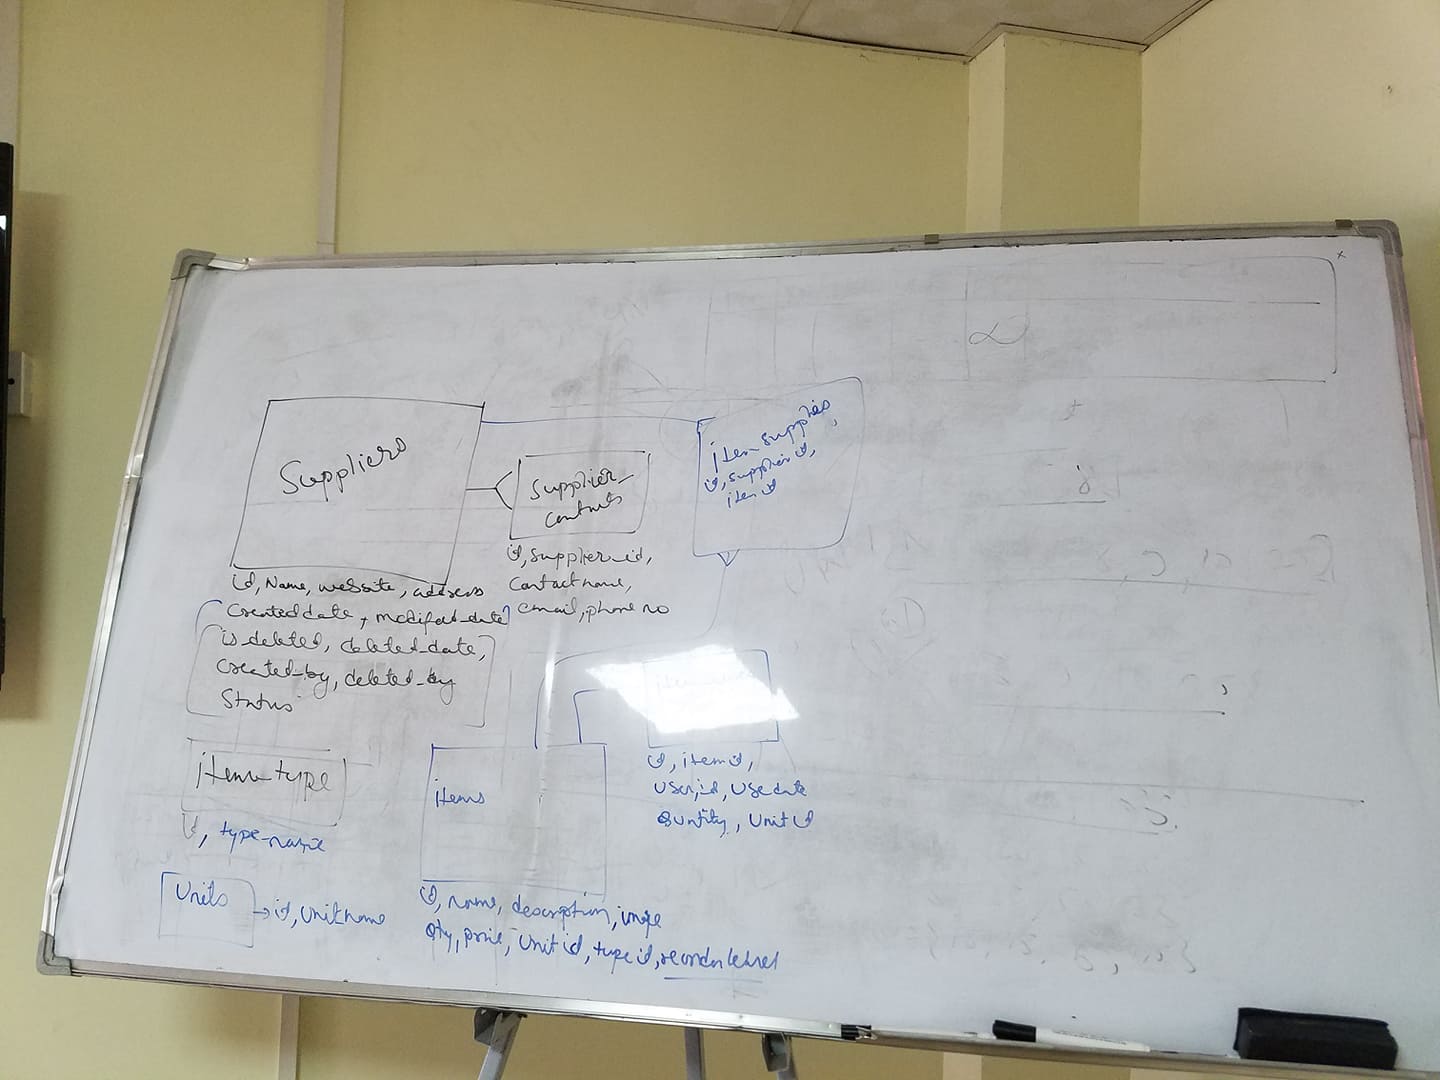 Suppliers
id, Name, website, address
Created date, modified-date
is deleted, deleted-date,
created-by, deleted-by
Status
Supplier-
contacts
id, supplier-id,
Contact name,
email, phone no
item supplies,
id, supplier id,
item id
item-type
id, type-name
Units
id, unit name
items
id, name, description, image
Qty, price, Unit id, type id, reorder level
id, item id,
User id, Use date
Quntity, Unit id